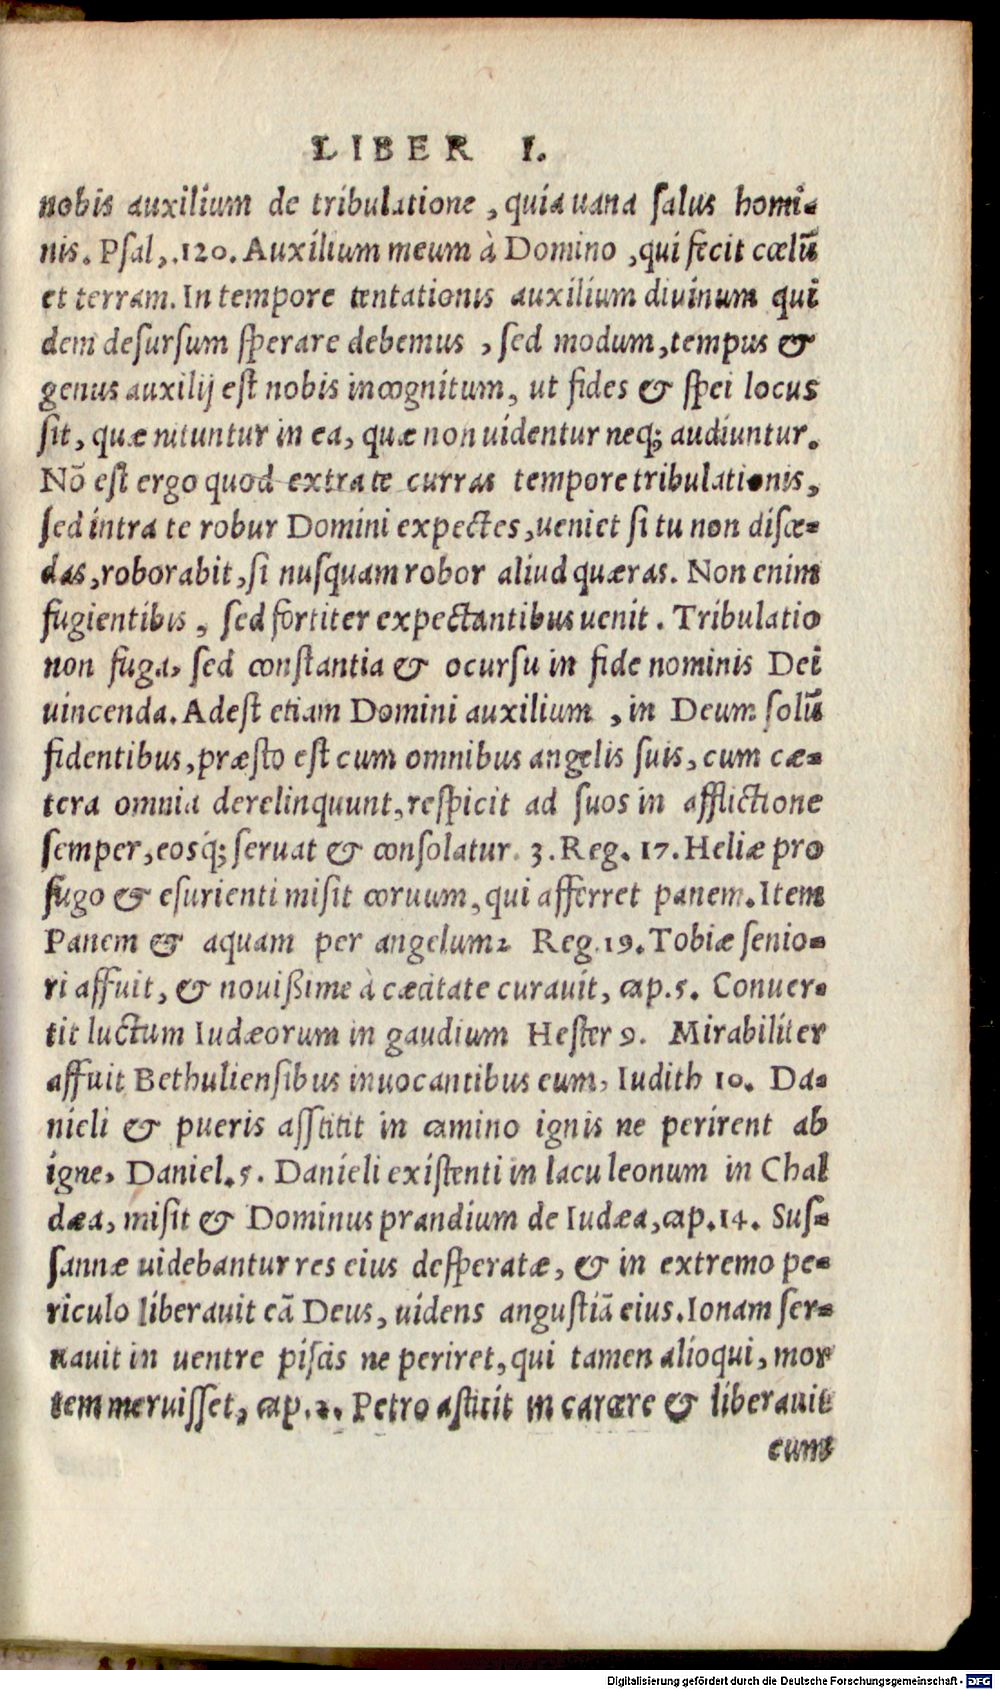 LIBER I.
nobis auxilium de tribulatione, quia uana salus homi-
nis. Psal,.120. Auxilium meum à Domino, qui fecit cœlũ
et terram. In tempore tentationis auxilium diuinum qui
dem desursum sperare debemus, sed modum, tempus &
genus auxilij est nobis incognitum, ut fides & spei locus
sit, quæ nituntur in ea, quæ non uidentur neq; audiuntur.
Nõ est ergo quod extra te curras tempore tribulationis,
sed intra te robur Domini expectes, ueniet si tu non disce-
das, roborabit, si nusquam robor aliud quæras. Non enim
fugientibis, sed fortiter expectantibus uenit. Tribulatio
non fuga, sed constantia & ocursu in fide nominis Dei
uincenda. Adest etiam Domini auxilium, in Deum solũ
fidentibus, præsto est cum omnibus angelis suis, cum cæ-
tera omnia derelinquunt, respicit ad suos in afflictione
semper, eosq́; seruat & consolatur. 3. Reg. 17. Heliæ pro
fugo & esurienti misit coruum, qui afferret panem. Item
Panem & aquam per angelum2 Reg.19. Tobiæ senio-
ri affuit, & nouißime à cæcitate curauit, cap.5. Conuer-
tit luctum Iudæorum in gaudium Hester 9. Mirabiliter
affuit Bethuliensibus inuocantibus eum, Iudith 10. Da-
nieli & pueris asstitit in camino ignis ne perirent ab
igne, Daniel.5. Danieli existenti in lacu leonum in Chal
dæa, misit & Dominus prandium de Iudæa, cap.14. Sus-
sannæ uidebantur res eius desperatæ, & in extremo pe-
riculo liberauit eã Deus, uidens angustiã eius. Ionam ser-
uauit in uentre piscis ne periret, qui tamen alioqui, mor
tem meruisset, cap.2. Petro astitit in carcere & liberauit
eum
Digitalisierung gefördert durch die Deutsche Forschungsgemeinschaft - DFG